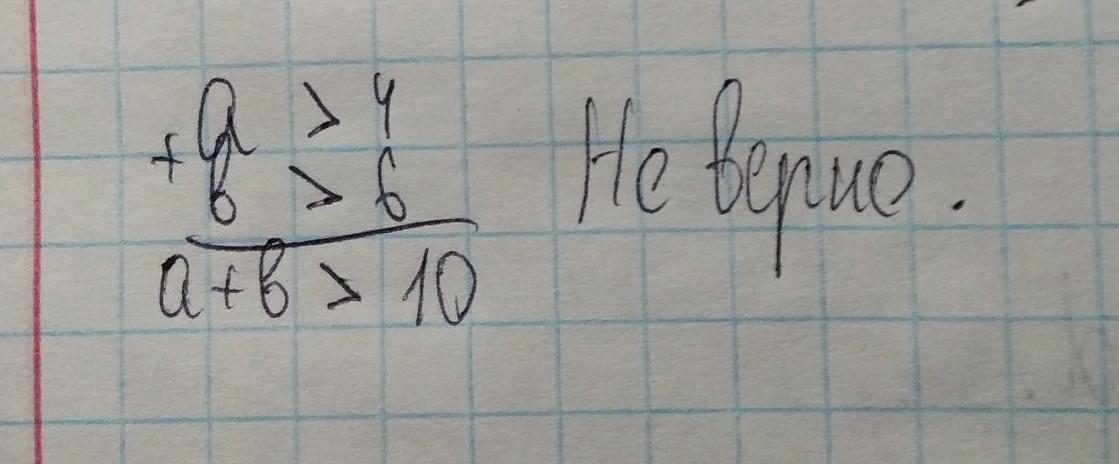 + a > 4
в > 6
a+в > 10
Не верно.